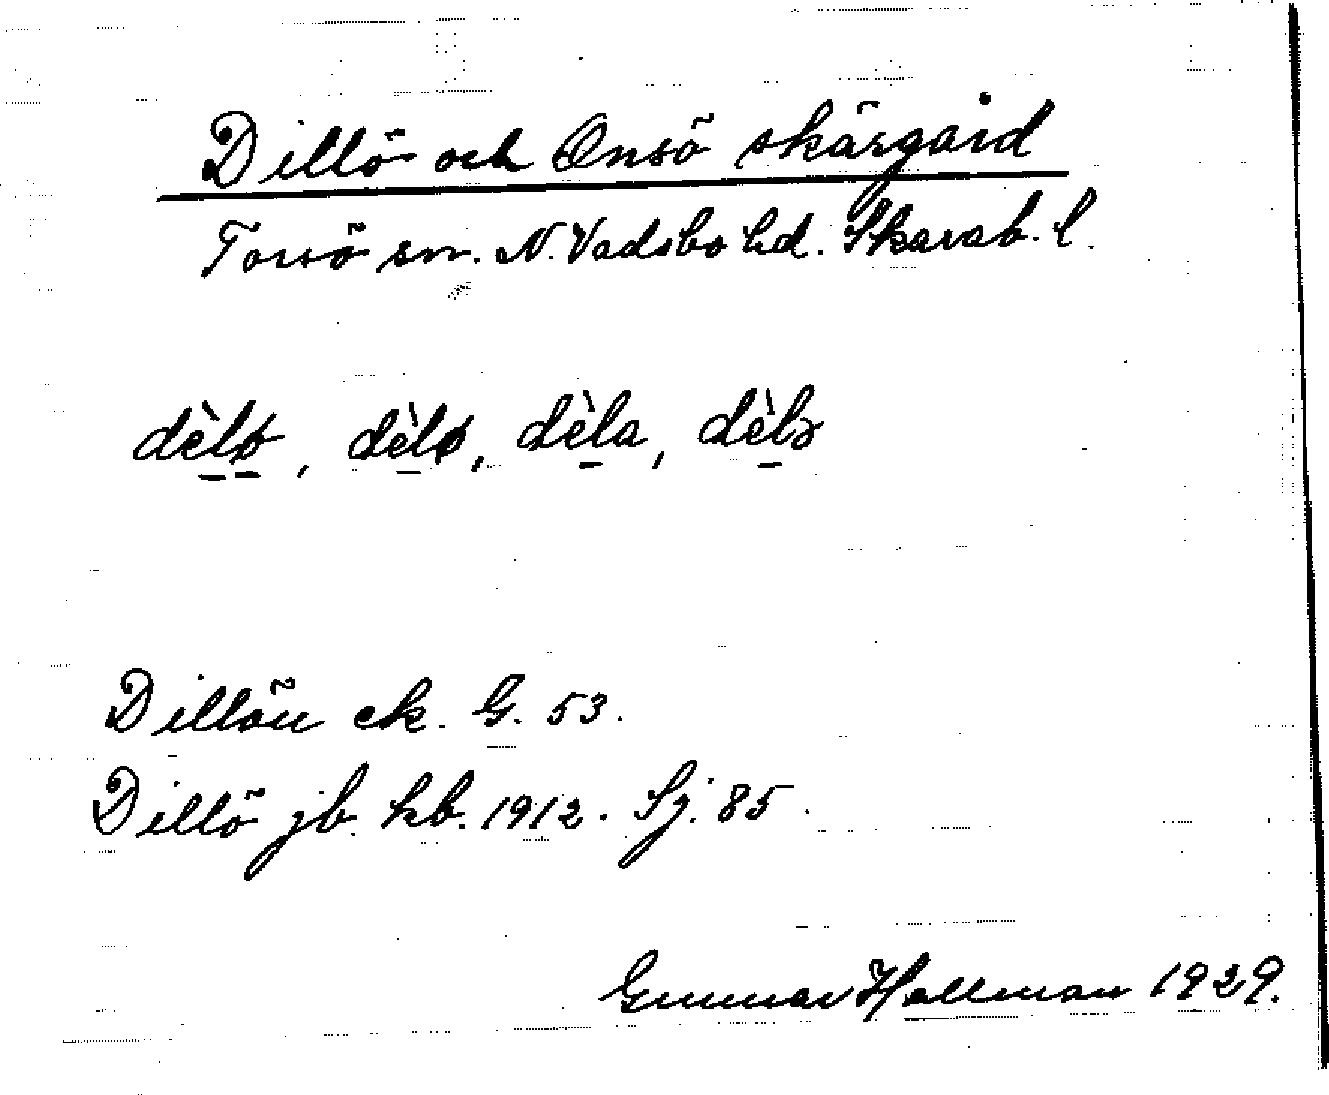 Dillö och Onsö skärgård
Torsö sn. N. Vadsbo hd. Skarab. l.
dè̱lø̱, dè̱lø, dè̱la, dè̱lə
Dillön ek. G. 53.
Dillö jb. kb. 1912. Sj. 85.
Gunnar Hallman 1929.